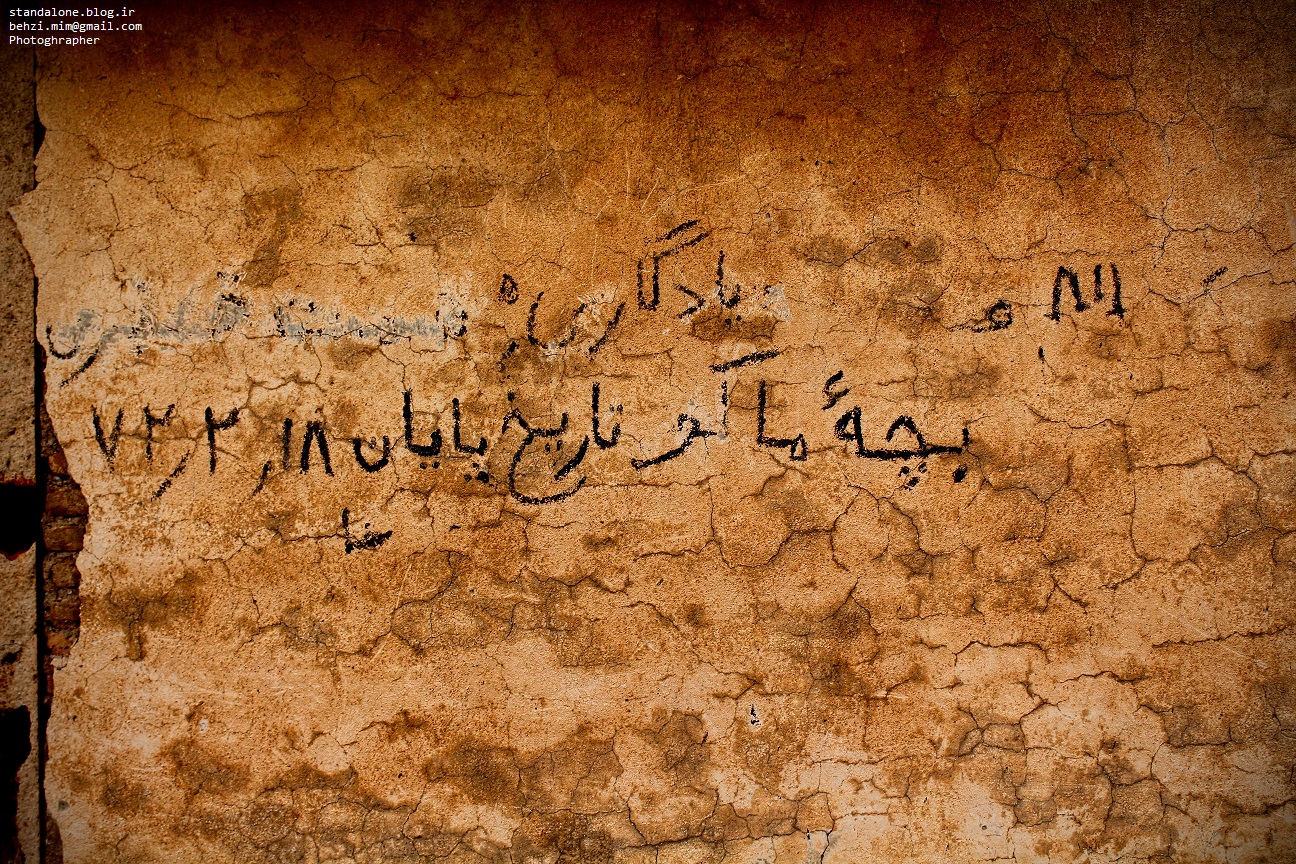 standalone.blog.ir
behzi.mim@gmail.com
Photoghrapher
یادگاری از
بچهٔ ماکو تاریخ پایان ۷۲,۲,۱۸